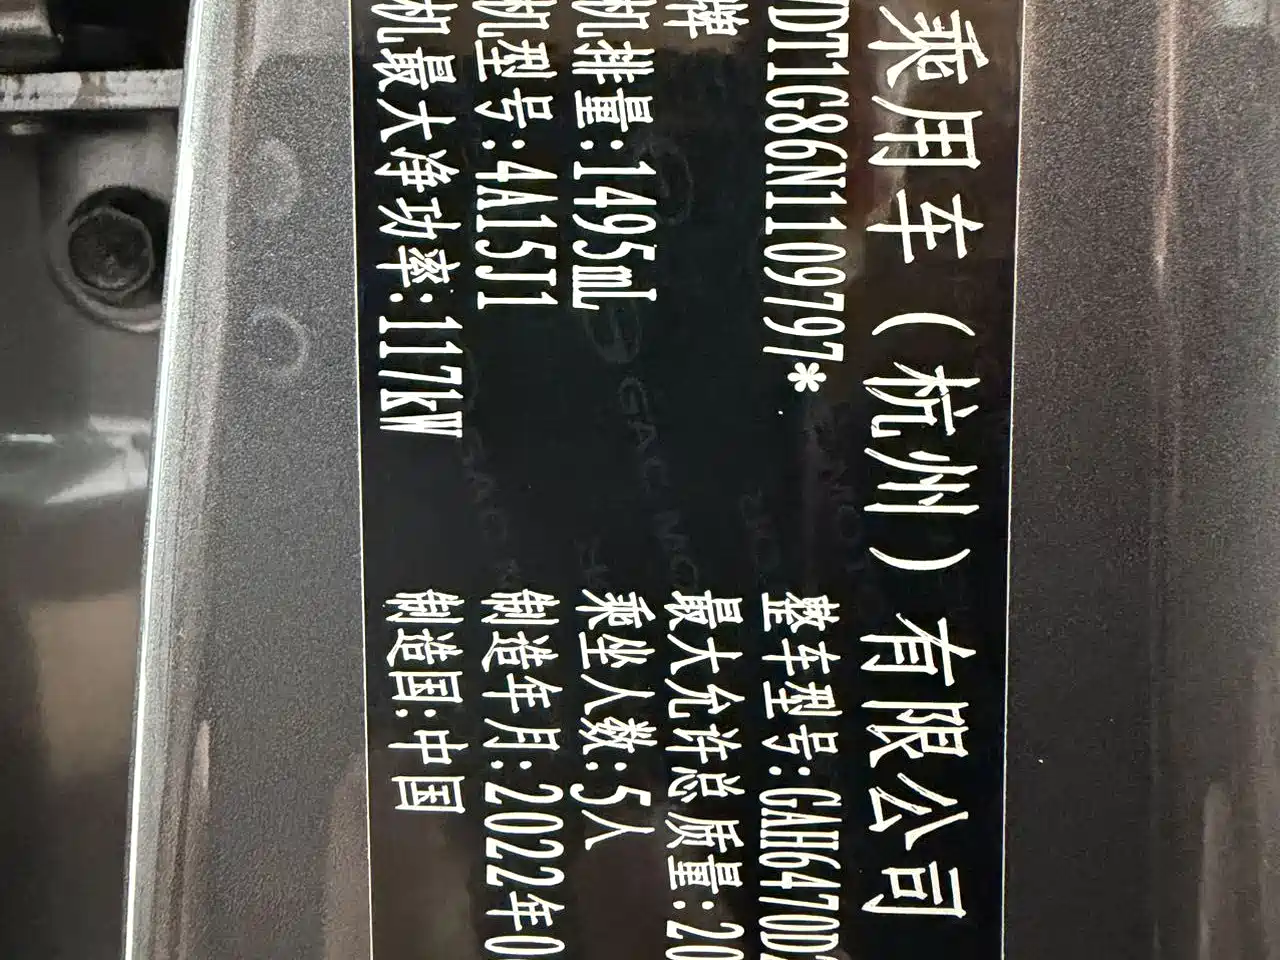 乘用车（杭州）有限公司
DT1G86N1109797*
整车型号:GAH6470D
牌
最大允许总质量:20
机排量:1495mL
乘坐人数:5人
机型号:4A15J1
制造年月:2022年0
机最大净功率:117kW
制造国:中国
GAC MO